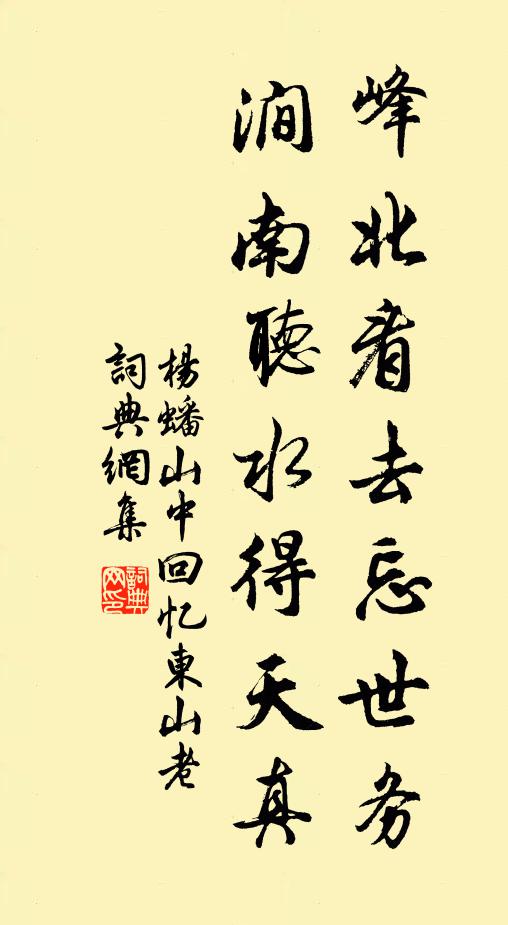 峰北看去忘世务
涧南聽水得天真
楊蟠山中回忆東山老
詞典網集
詞典网印